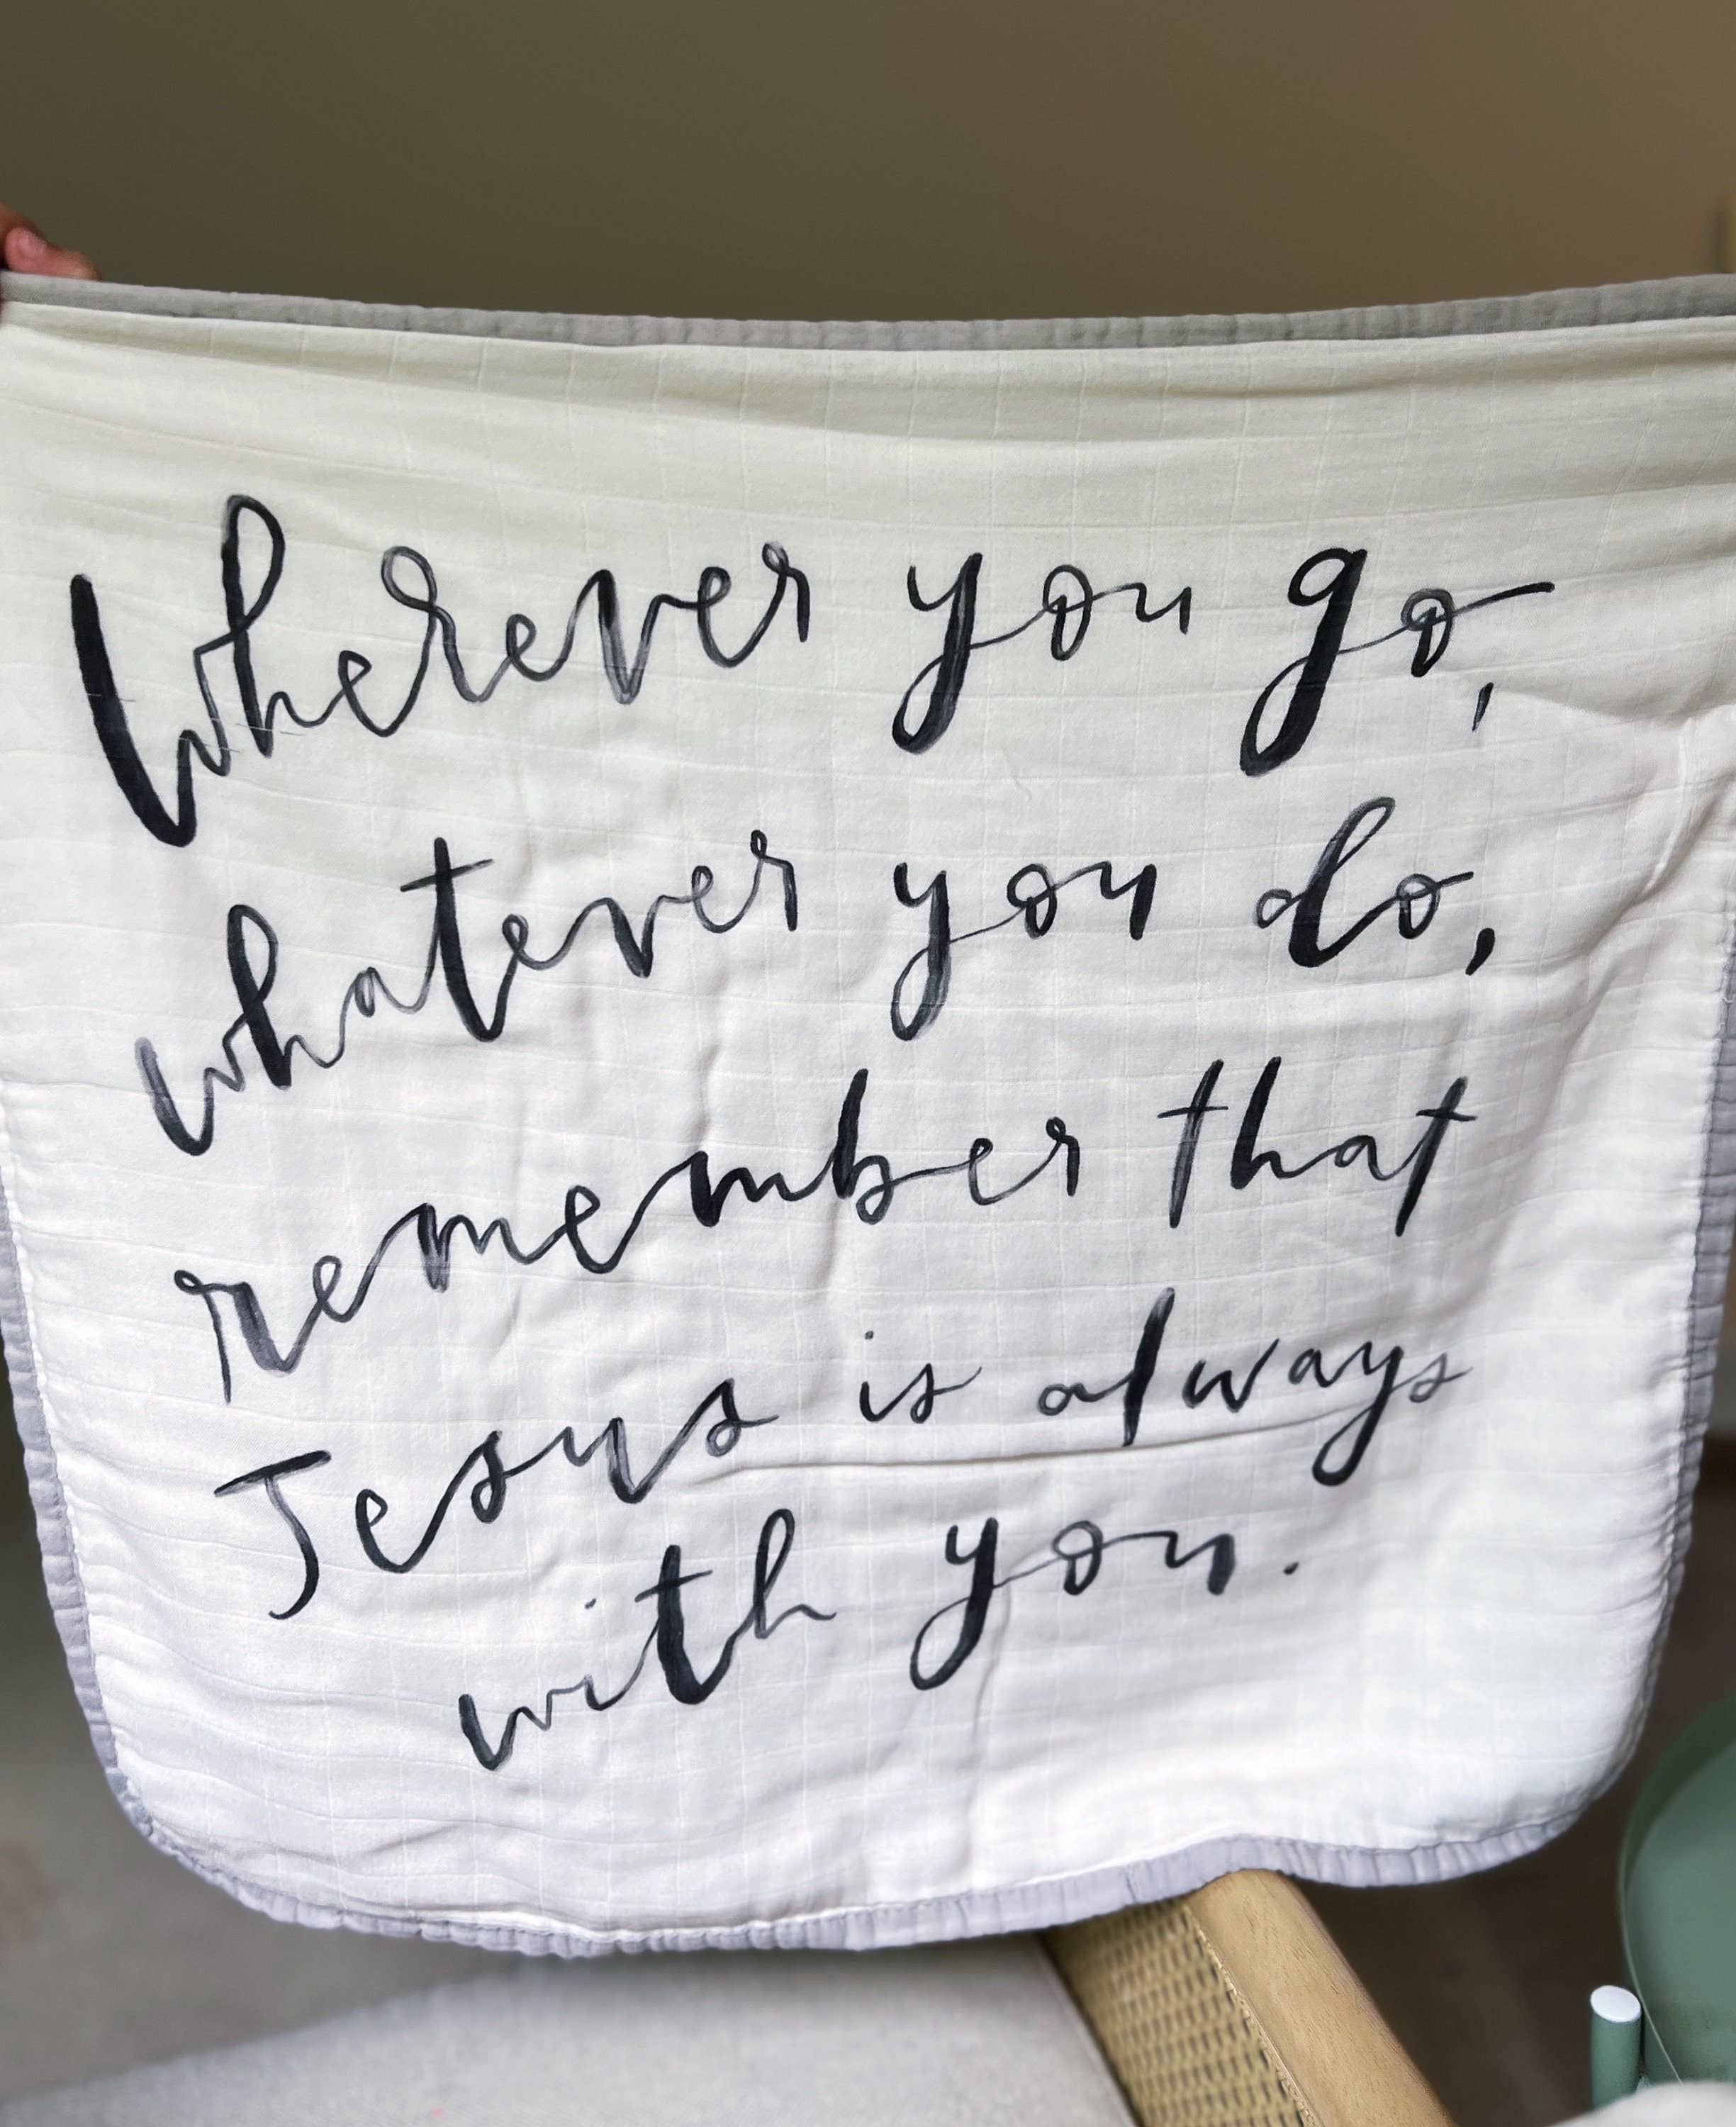 Wherever you go,
whatever you do,
remember that
Jesus is always
with you.